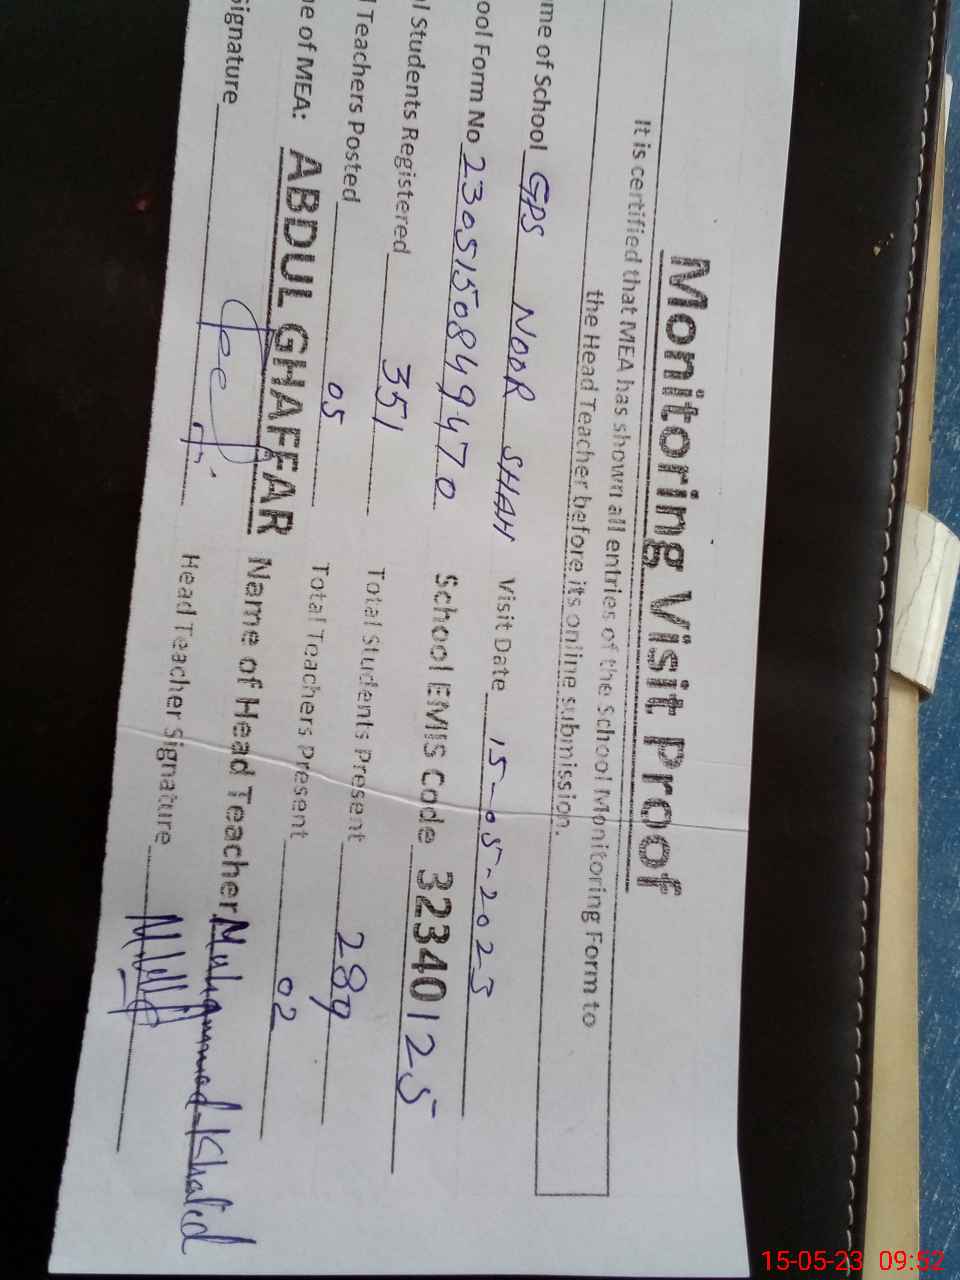 Monitoring Visit Proof
It is certified that MEA has shown all entries of the School Monitoring Form to
the Head Teacher before its online submission.
me of School GPS NOOR SHAH Visit Date 15-05-2023
ool Form No 2305150849470 School EMIS Code 32340125
l Students Registered 351 Total Students Present 289
l Teachers Posted 05 Total Teachers Present 02
e of MEA: ABDUL GHAFFAR Name of Head Teacher Muhammad Khalid
Signature Head Teacher Signature
15-05-23 09:52